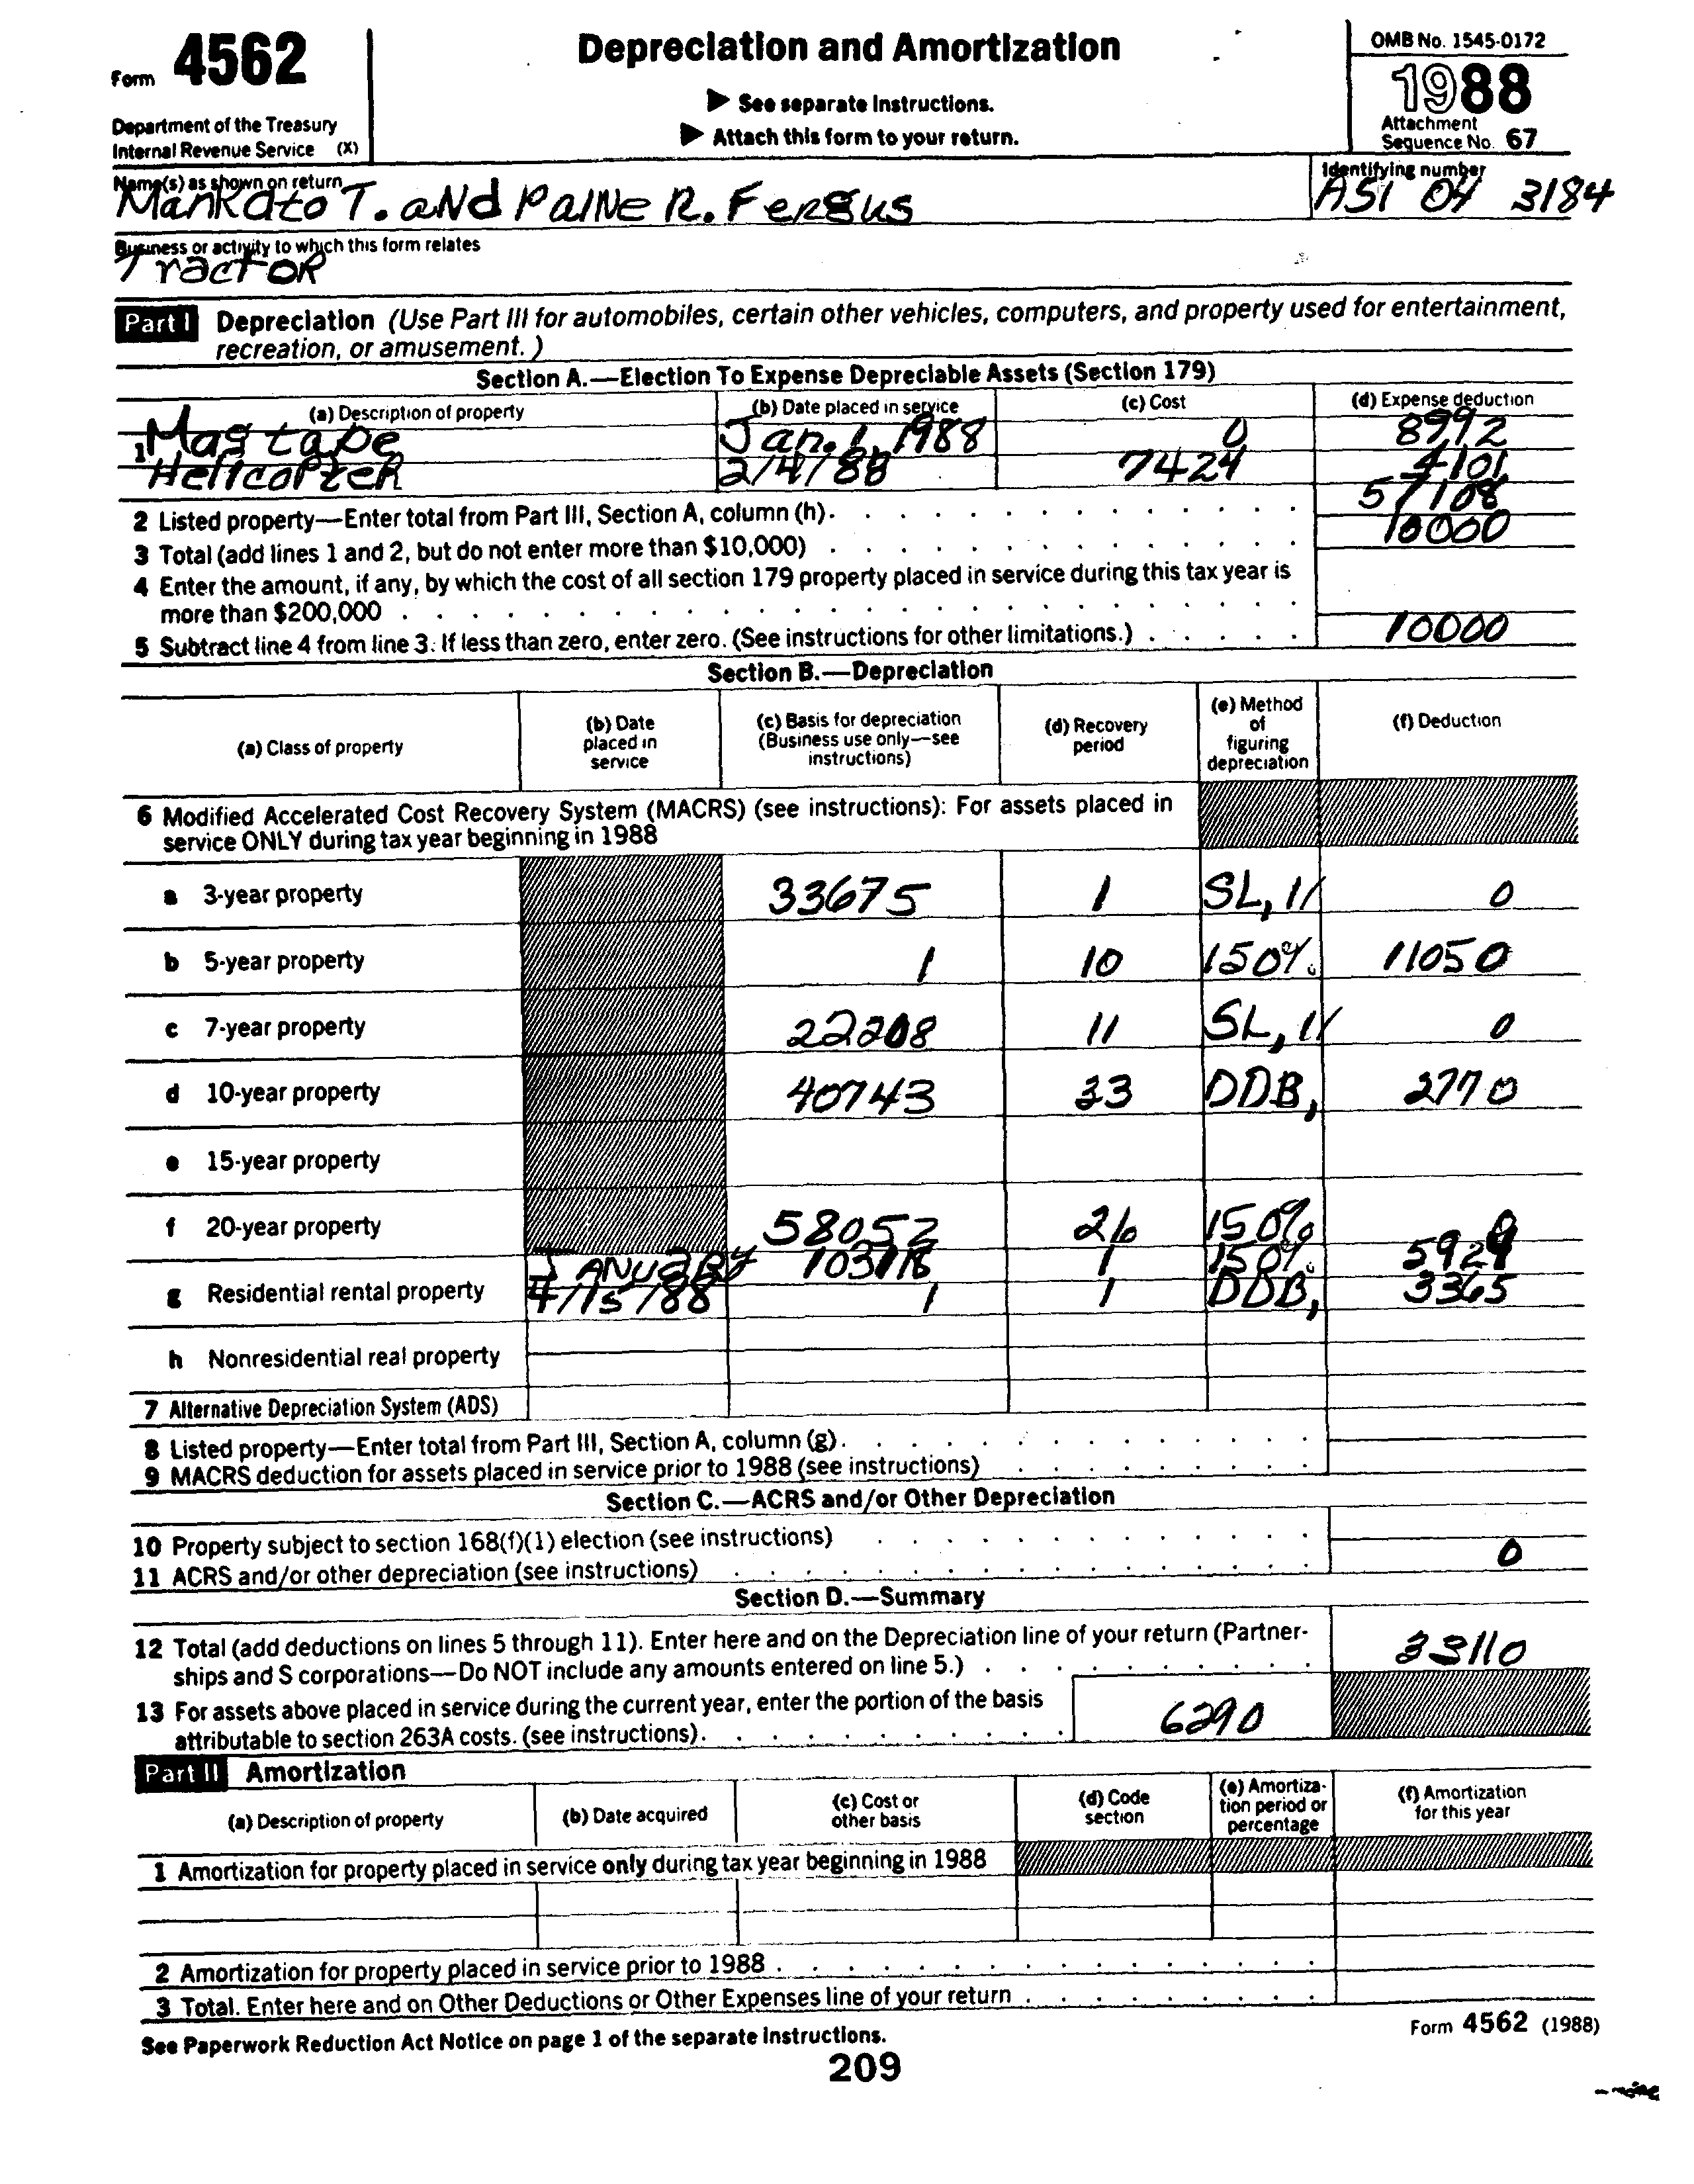 Form 4562
Depreciation and Amortization
OMB No. 1545-0172
1988
▶ See separate Instructions.
▶ Attach this form to your return.
Department of the Treasury
Internal Revenue Service (X)
Attachment
Sequence No. 67
Name(s) as shown on return
Mankato T. aNd PaINe R. Fergus
Identifying number
ASI 04 3184
Business or activity to which this form relates
TractoR
Part I Depreciation (Use Part III for automobiles, certain other vehicles, computers, and property used for entertainment,
recreation, or amusement.)
Section A.—Election To Expense Depreciable Assets (Section 179)
(a) Description of property (b) Date placed in service (c) Cost (d) Expense deduction
1 Mag tape Jan. 1, 1988 0 8992
Helicopter 2/4/88 7424 4101
2 Listed property—Enter total from Part III, Section A, column (h). 57108
3 Total (add lines 1 and 2, but do not enter more than $10,000) 10000
4 Enter the amount, if any, by which the cost of all section 179 property placed in service during this tax year is
more than $200,000
5 Subtract line 4 from line 3. If less than zero, enter zero. (See instructions for other limitations.) 10000
Section B.—Depreciation
(a) Class of property (b) Date placed in service (c) Basis for depreciation (Business use only—see instructions) (d) Recovery period (e) Method of figuring depreciation (f) Deduction
6 Modified Accelerated Cost Recovery System (MACRS) (see instructions): For assets placed in
service ONLY during tax year beginning in 1988
a 3-year property 33675 1 SL, 11 0
b 5-year property 1 10 150% 11050
c 7-year property 22208 11 SL, 11 0
d 10-year property 40743 33 DDB, 2770
e 15-year property
f 20-year property 58052 26 150% 0
JANUaRy 103718 1 150% 5929
g Residential rental property 4/15/88 1 1 DDB, 3365
h Nonresidential real property
7 Alternative Depreciation System (ADS)
8 Listed property—Enter total from Part III, Section A, column (g).
9 MACRS deduction for assets placed in service prior to 1988 (see instructions)
Section C.—ACRS and/or Other Depreciation
10 Property subject to section 168(f)(1) election (see instructions)
11 ACRS and/or other depreciation (see instructions) 0
Section D.—Summary
12 Total (add deductions on lines 5 through 11). Enter here and on the Depreciation line of your return (Partner-
ships and S corporations—Do NOT include any amounts entered on line 5.) 33110
13 For assets above placed in service during the current year, enter the portion of the basis
attributable to section 263A costs. (see instructions). 6290
Part II Amortization
(a) Description of property (b) Date acquired (c) Cost or other basis (d) Code section (e) Amortiza-tion period or percentage (f) Amortization for this year
1 Amortization for property placed in service only during tax year beginning in 1988
2 Amortization for property placed in service prior to 1988
3 Total. Enter here and on Other Deductions or Other Expenses line of your return
See Paperwork Reduction Act Notice on page 1 of the separate instructions.
Form 4562 (1988)
209